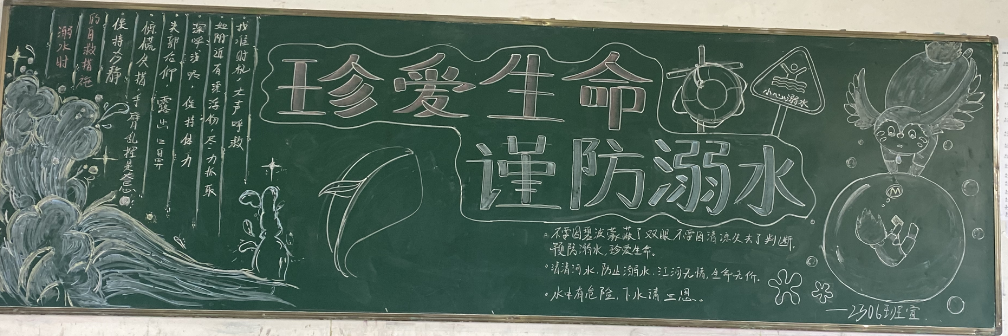 珍爱生命
谨防溺水
小心溺水
溺水时
的自救措施
保持冷静
俯慌失措 手臂乱挥是大忌
头部后仰 露出口鼻
深呼浅吸，保持体力
如附近有漂浮物尽力抓取
找准时机 大声呼救
不要因碧波蒙蔽了双眼 不要因清凉失去了判断.
预防溺水,珍爱生命.
清清河水,防止溺水,江河无情,生命无价.
水中有危险,下水请三思。
M
2306班宣